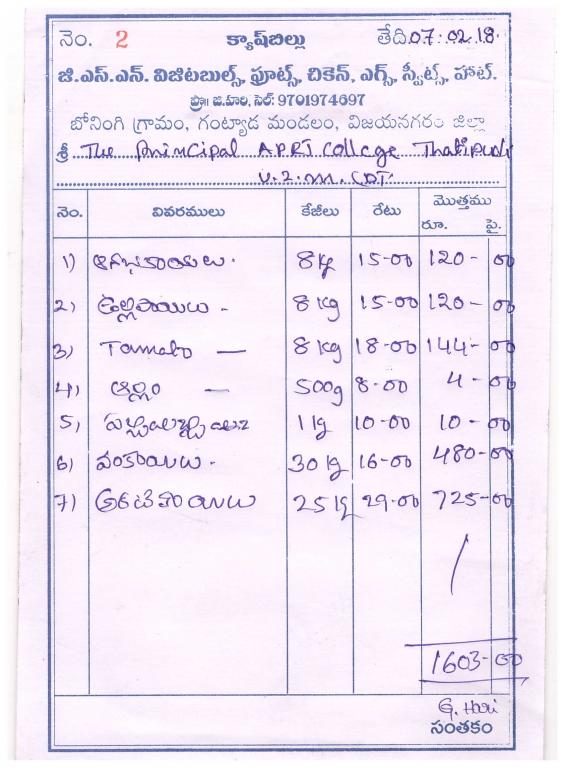 నెం. 2 క్యాష్‌బిల్లు తేది 07.02.18.
జి.ఎస్.ఎన్. విజిటబుల్స్, ఫ్రూట్స్, చికెన్, ఎగ్స్, స్వీట్స్, హాట్.
ప్రొ॥ జి.హరి, సెల్: 9701974697
బోనింగి గ్రామం, గంట్యాడ మండలం, విజయనగరం జిల్లా
శ్రీ The Principal APRJ College Thatipudi
V.Z.M. CDT.
నెం. వివరములు కేజీలు రేటు మొత్తము
రూ. పై.
1) ఆనభకాయలు. 8 Kg 15-00 120-00
2) ఉల్లిపాయలు - 8 Kg 15-00 120-00
3) Tomato — 8 Kg 18-00 144-00
4) అల్లం — 500g 8-00 4-00
5) 1 Kg 10-00 10-00
6) వంకాయలు. 30 Kg 16-00 480-00
7) అరటికాయలు 25 Kg 29-00 725-00
1603-00
G. Hari
సంతకం